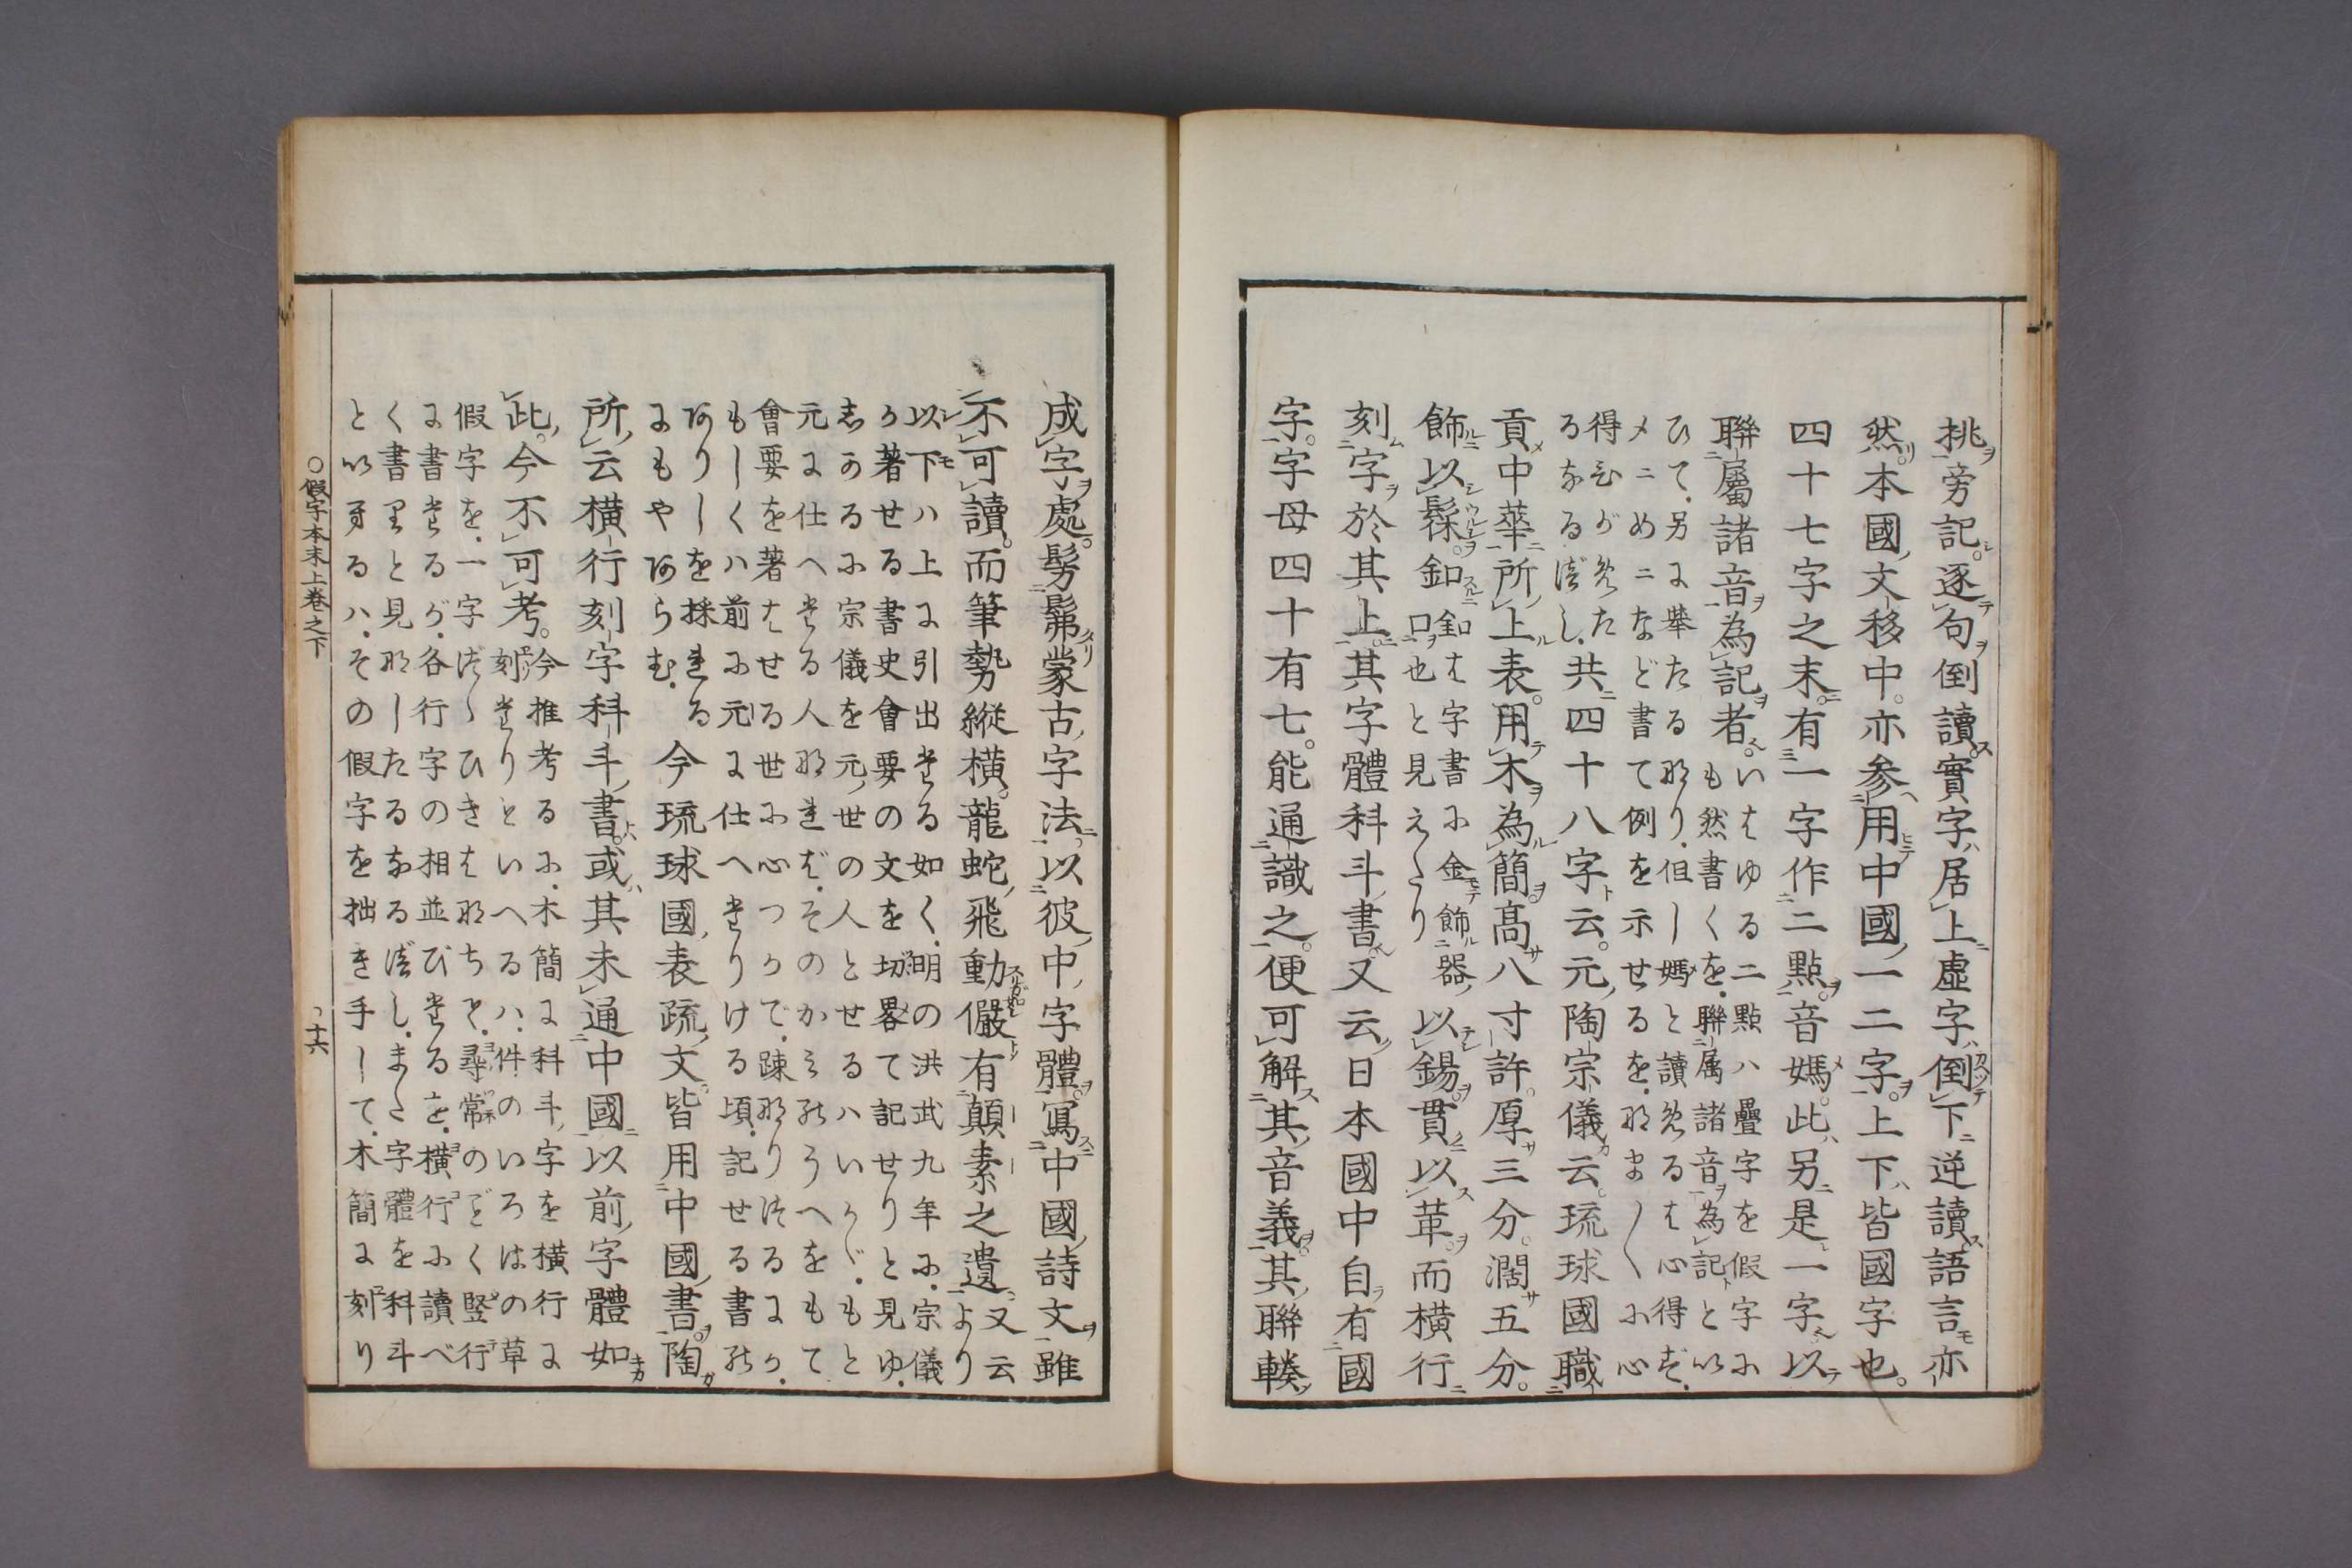 挑旁記。逐句倒讀實字居上虛字倒下逆讀語言亦
然。本國文移中。亦參用中國一二字。上下皆國字也。
四十七字之末。有一字作二點。音媽。此另是一字。以
聯屬諸音為記者。いはゆる二點ハ疊字を假字に
も然書くを.聯属諸音為記と以
ひて.另に舉たる那り.但し媽と讀めるは心得ず.
メニめニなど書て例を示せるを.那ほ〳〵に心
得ひがめた
るなるべし.共四十八字云。元陶宗儀云。琉球國職
貢中華所上表。用木為簡高八寸許。厚三分。濶五分。
飾以髹。釦釦は字書に金飾器
口也と見えたり以錫貫以革。而横行
刻字於其上。其字體科斗書。又云日本國中自有國
字。字母四十有七。能通識之。便可解其音義。其聯輳
成字處。髣髴蒙古字法。以彼中字體。寫中國詩文雖
不可讀。而筆勢縱横。龍蛇飛動儼有顛素之遺又云
より
以下ハ上に引出たる如く.明の洪武九年に.宗儀
が著せる書史會要の文を切畧て記せりと見ゆ.
しかるに宗儀を元世の人とせるハいかゞ.もと
元に仕へたる人那れど.そのかみのうへをもて
會要を著はせる世に心つかで.疎那りけるにか.
もしくハ前に元に仕へたりける頃.記せる書の
ありしを採れる
にもやあらむ.今琉球國表疏文皆用中國書。陶
所云横行刻字科斗書。或其未通中國以前字體如
此。今不可考。今推考るに.木簡に科斗字を横行に
刻たりといへるハ.件のいろはの草
假字を.一字づゝひきはなちて.尋常のごとく竪行
に書たるが.各行字の相並びたるを.横行に讀べ
く書りと見那したるなるべし.また字體を科斗
と以へるハ.その假字を拙き手して.木簡に刻り
○假字本末上巻之下
十六